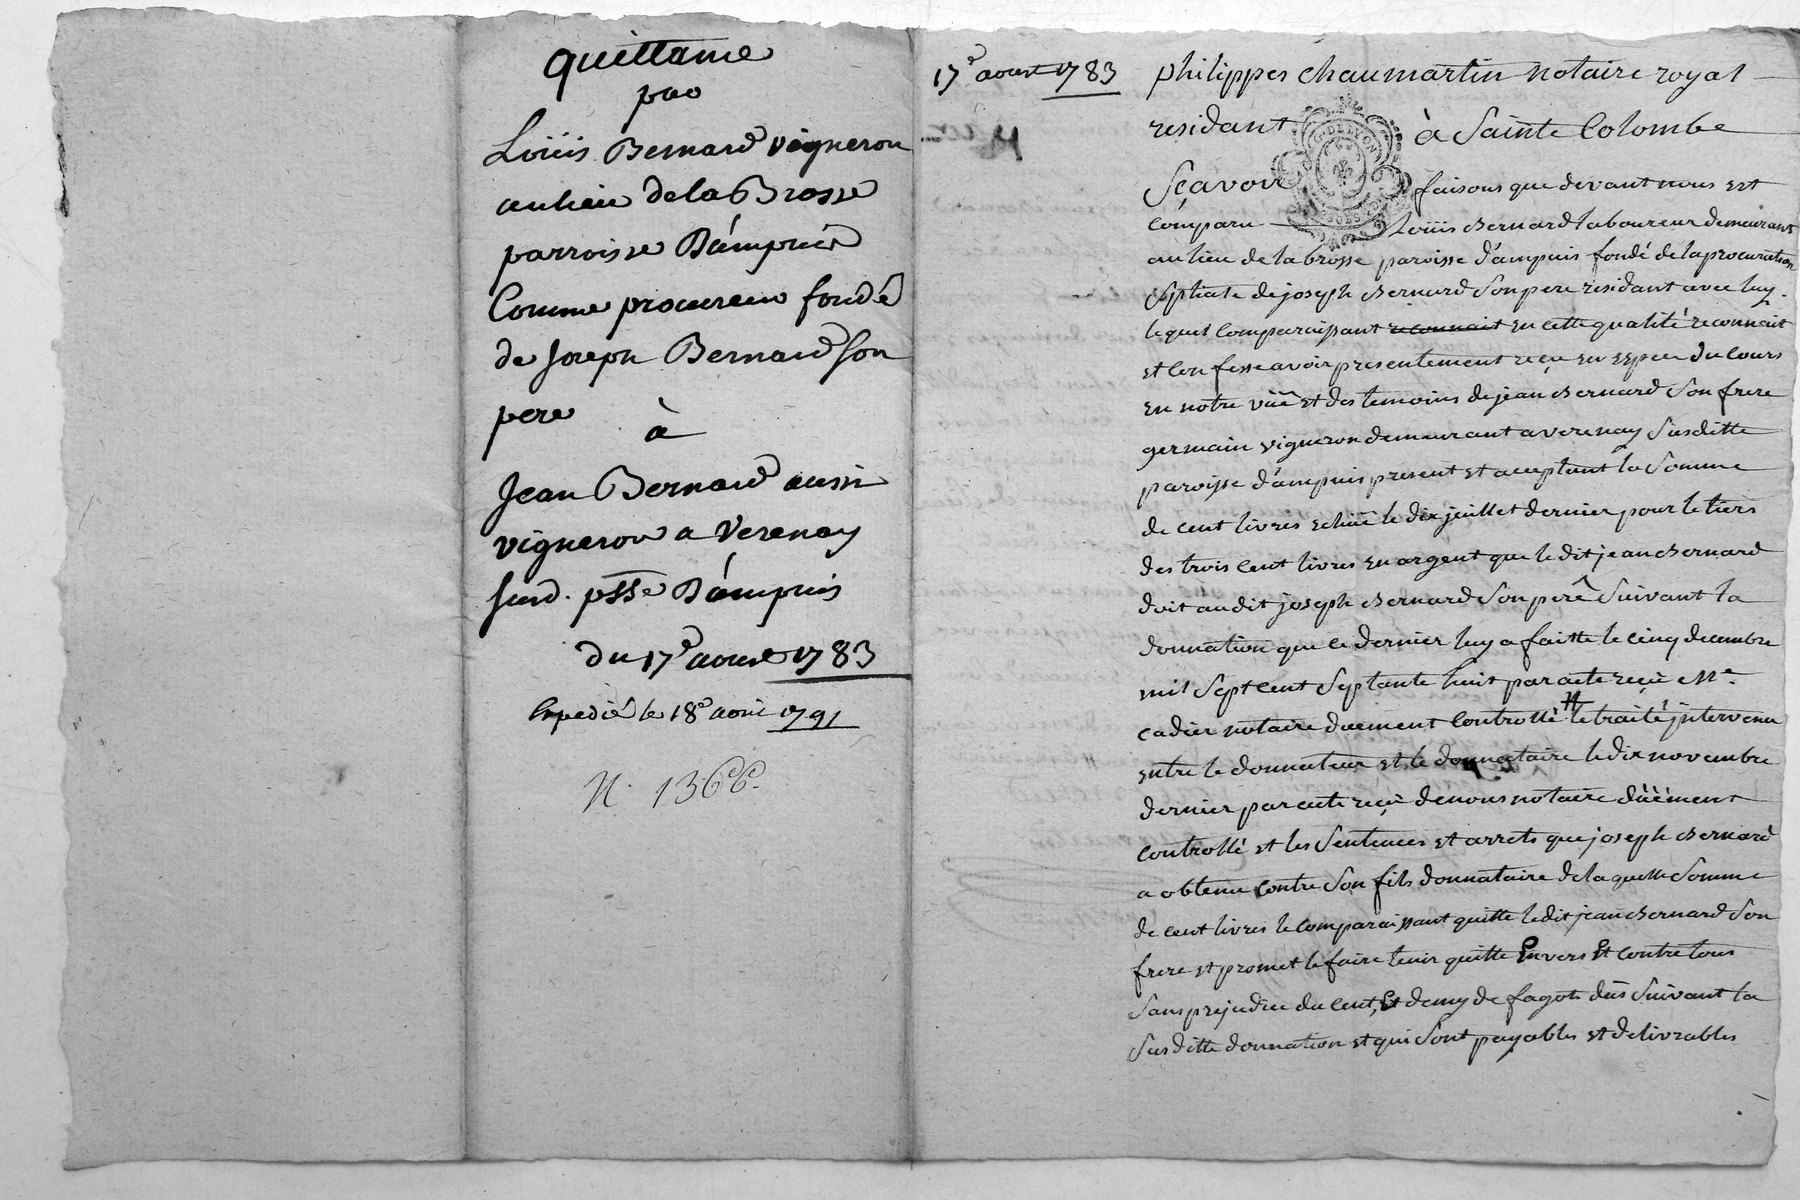 quittance
par
Loüis Bernard vigneron
au lieu de la Brosse
parroisse D'ampuis
Comme procureur fondé
de Joseph Bernard son
pere
à
Jean Bernard aussi
vigneron a Verenay
susd. psse D'ampuis
du 17e aoust 1783
Expedié le 18e aout 1791
N. 1366.
17e aoust 1783
philippes chaumartin notaire royal
residant à Sainte Colombe
Sçavoir faisons que devant nous est
comparu Loüis Bernard laboureur demeurant
au lieu de la brosse paroisse d'ampuis fondé de la procuration
spëale de joseph Bernard Son pere residant avec luy.
lequel comparaissant reconnait en cette qualité reconnait
et confesse avoir presentement reçu en espece du cours
en notre vüe et des temoins de jean Bernard Son frere
germain vigneron demeurant a verenay Susditte
paroisse d'ampuis present et aceptant la Somme
de cent livres echüe le dix juillet dernier pour le tiers
des trois cent livres en argent que le dit jean Bernard
doit au dit joseph Bernard Son pere Suivant la
donnation que ce dernier luy a faitte le cinq decembre
mil Sept cent Septante huit par acte reçu Me.
cadier notaire duement controllé # le traité intervenu
entre le donnateur et le donnataire le dix novembre
dernier par acte reçu de nous notaire düement
controllé et les Sentences et arrets que joseph Bernard
a obtenu contre Son fils donnataire de laquelle Somme
de cent livres le comparaissant quitte le dit jean Bernard Son
frere et promet le faire tenir quitte Envers Et contre tous
Sans prejudice du cent, Et demy de fagots dus Suivant la
Susditte donnation et qui Sont payables et delivrables